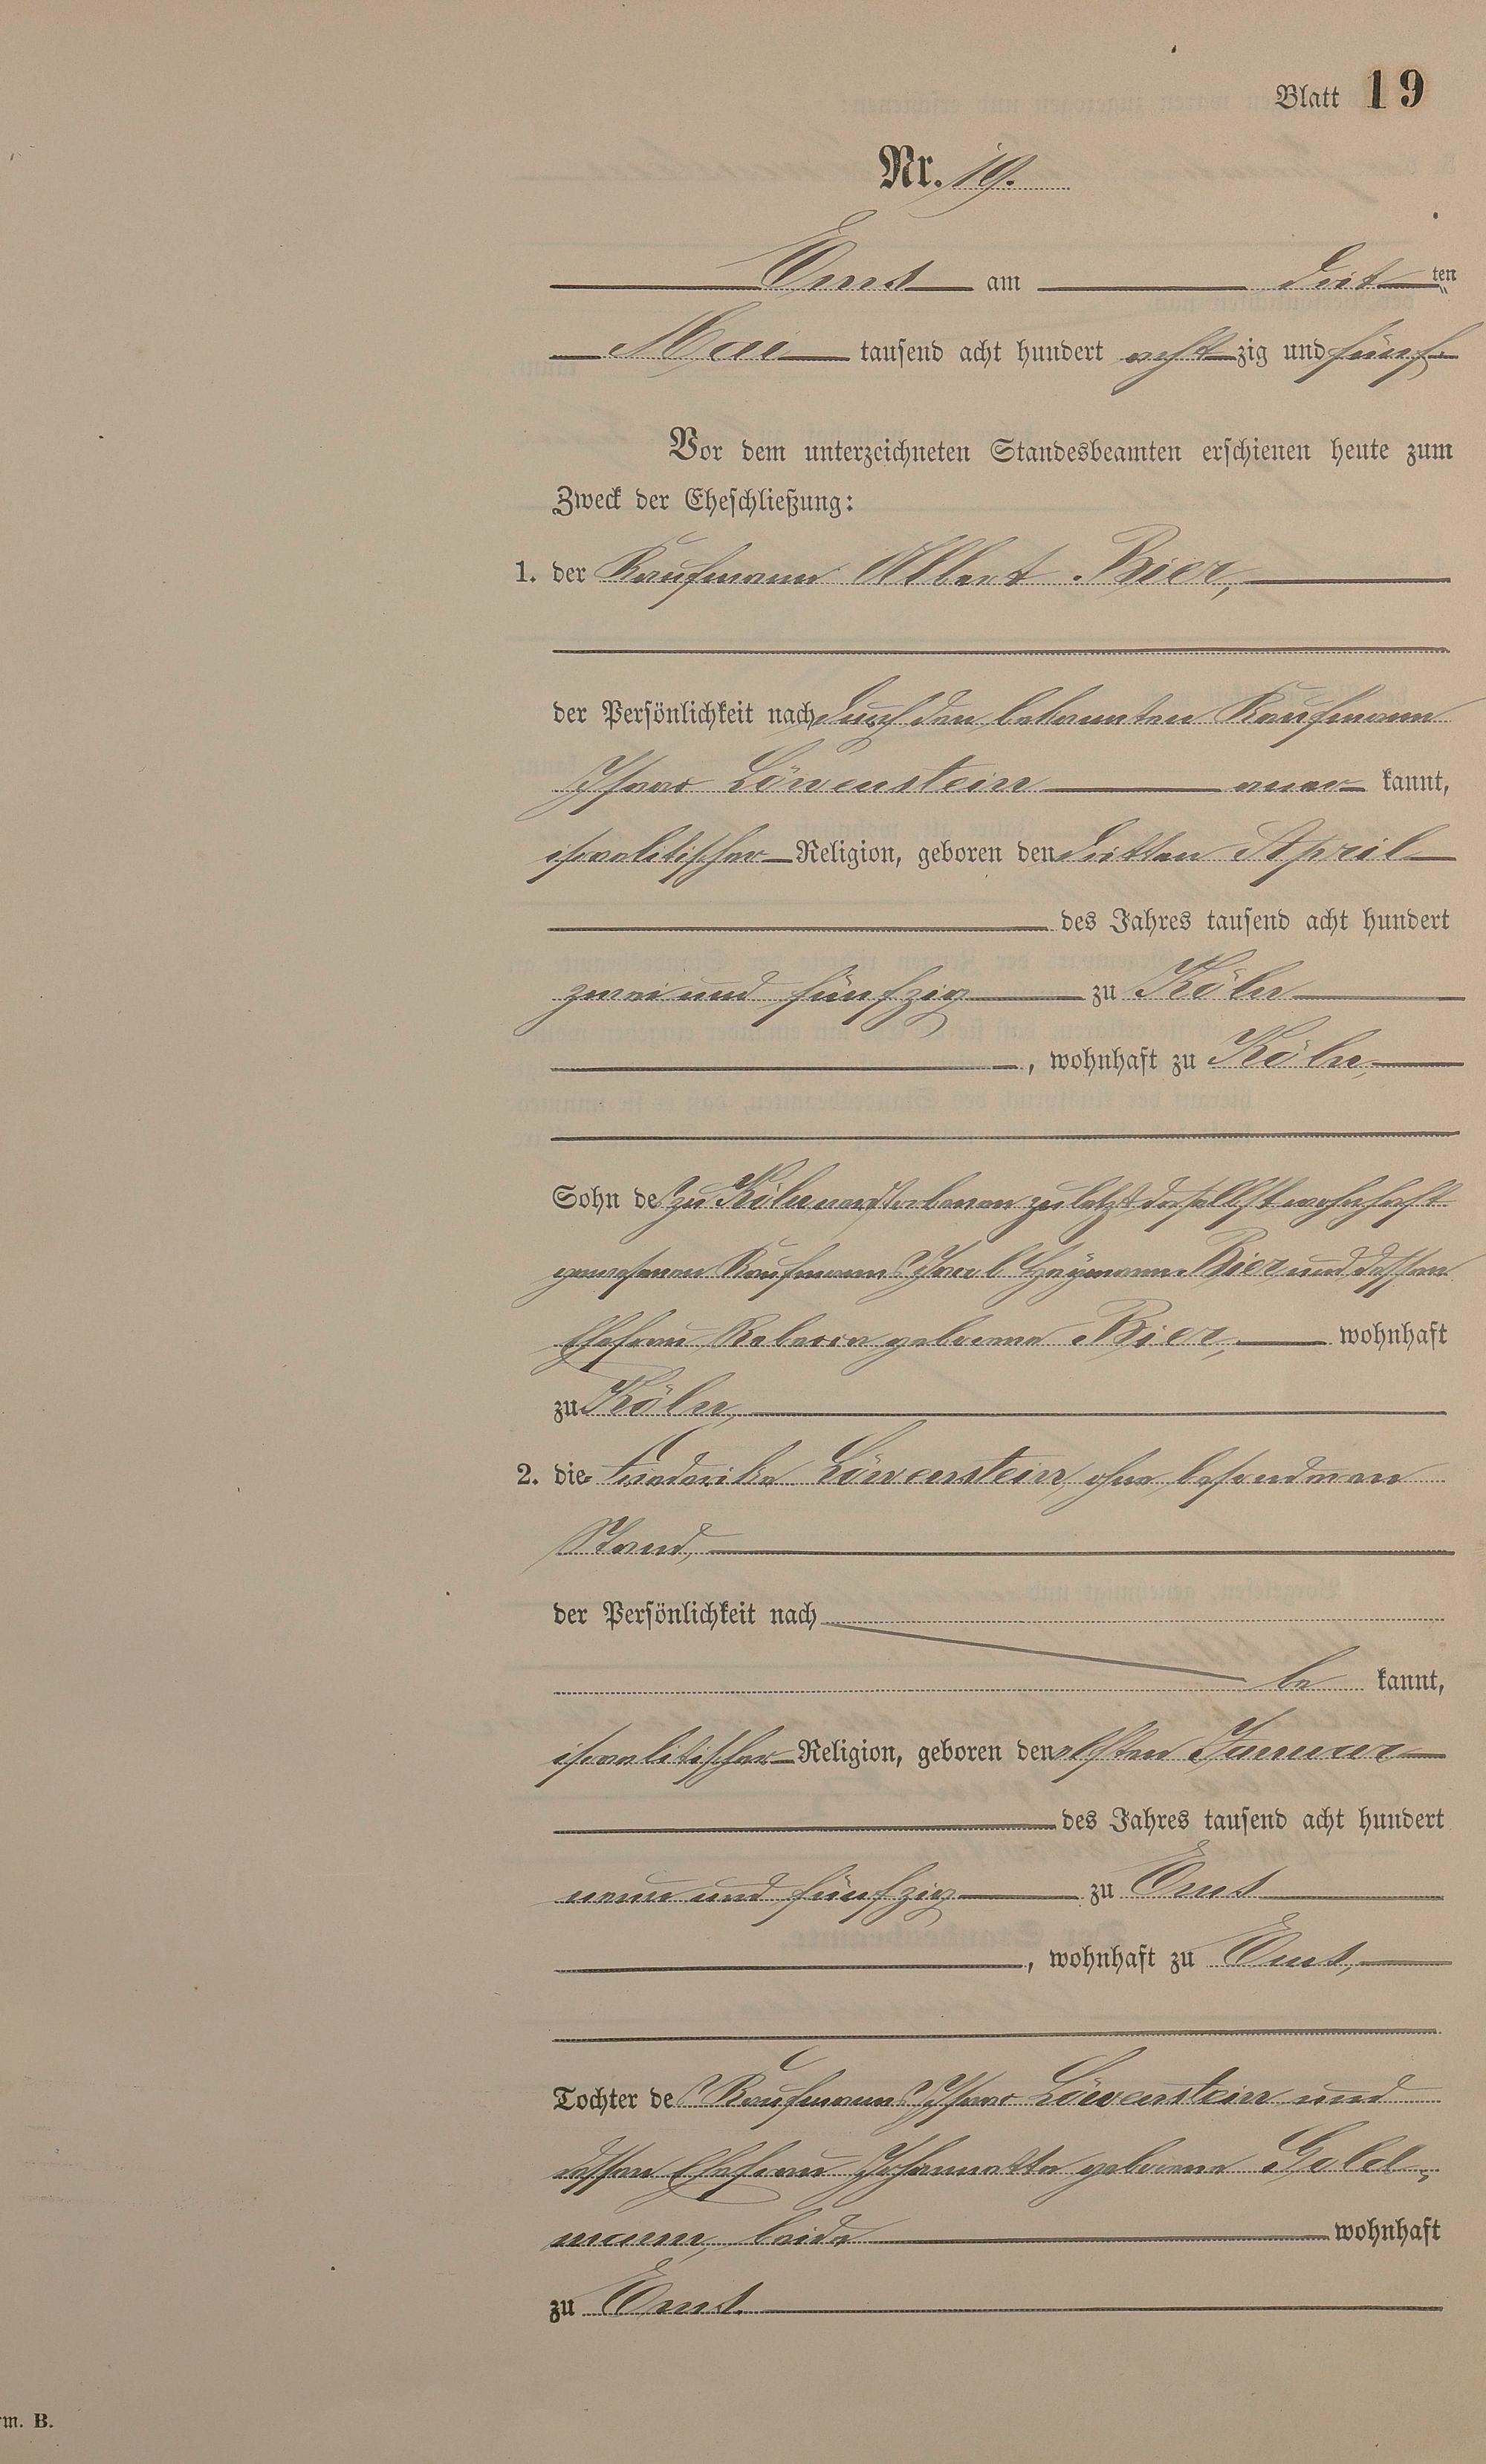 Blatt 19
Nr. 19.
Ems am drit ten
Mai tausend acht hundert acht zig und fünf.
Vor dem unterzeichneten Standesbeamten erschienen heute zum
Zweck der Eheschließung:
1. der Kaufmann Albert Bier,
der Persönlichkeit nach durch den bekannten Kaufmann
Isaac Löwenstein aner kannt,
israelitischer Religion, geboren den dritten April
des Jahres tausend acht hundert
zwei und fünfzig zu Köln
, wohnhaft zu Köln,
Sohn des zu Köln verstorbenen zuletzt daselbst wohnhaft
gewesenen Kaufmanns Heymann Bier und dessen
Ehefrau Rebecca geborene Bier, wohnhaft
zu Köln,
2. die Friederike Löwenstein, ohne besonderen
Stand,
der Persönlichkeit nach
be kannt,
israelitischer Religion, geboren den elften Januar
des Jahres tausend acht hundert
neun und fünfzig zu Ems
, wohnhaft zu Ems,
Tochter des Kaufmanns Isaac Löwenstein und
dessen Ehefrau Johannette geborene Gold-
mann, beide wohnhaft
zu Ems.
rm. B.